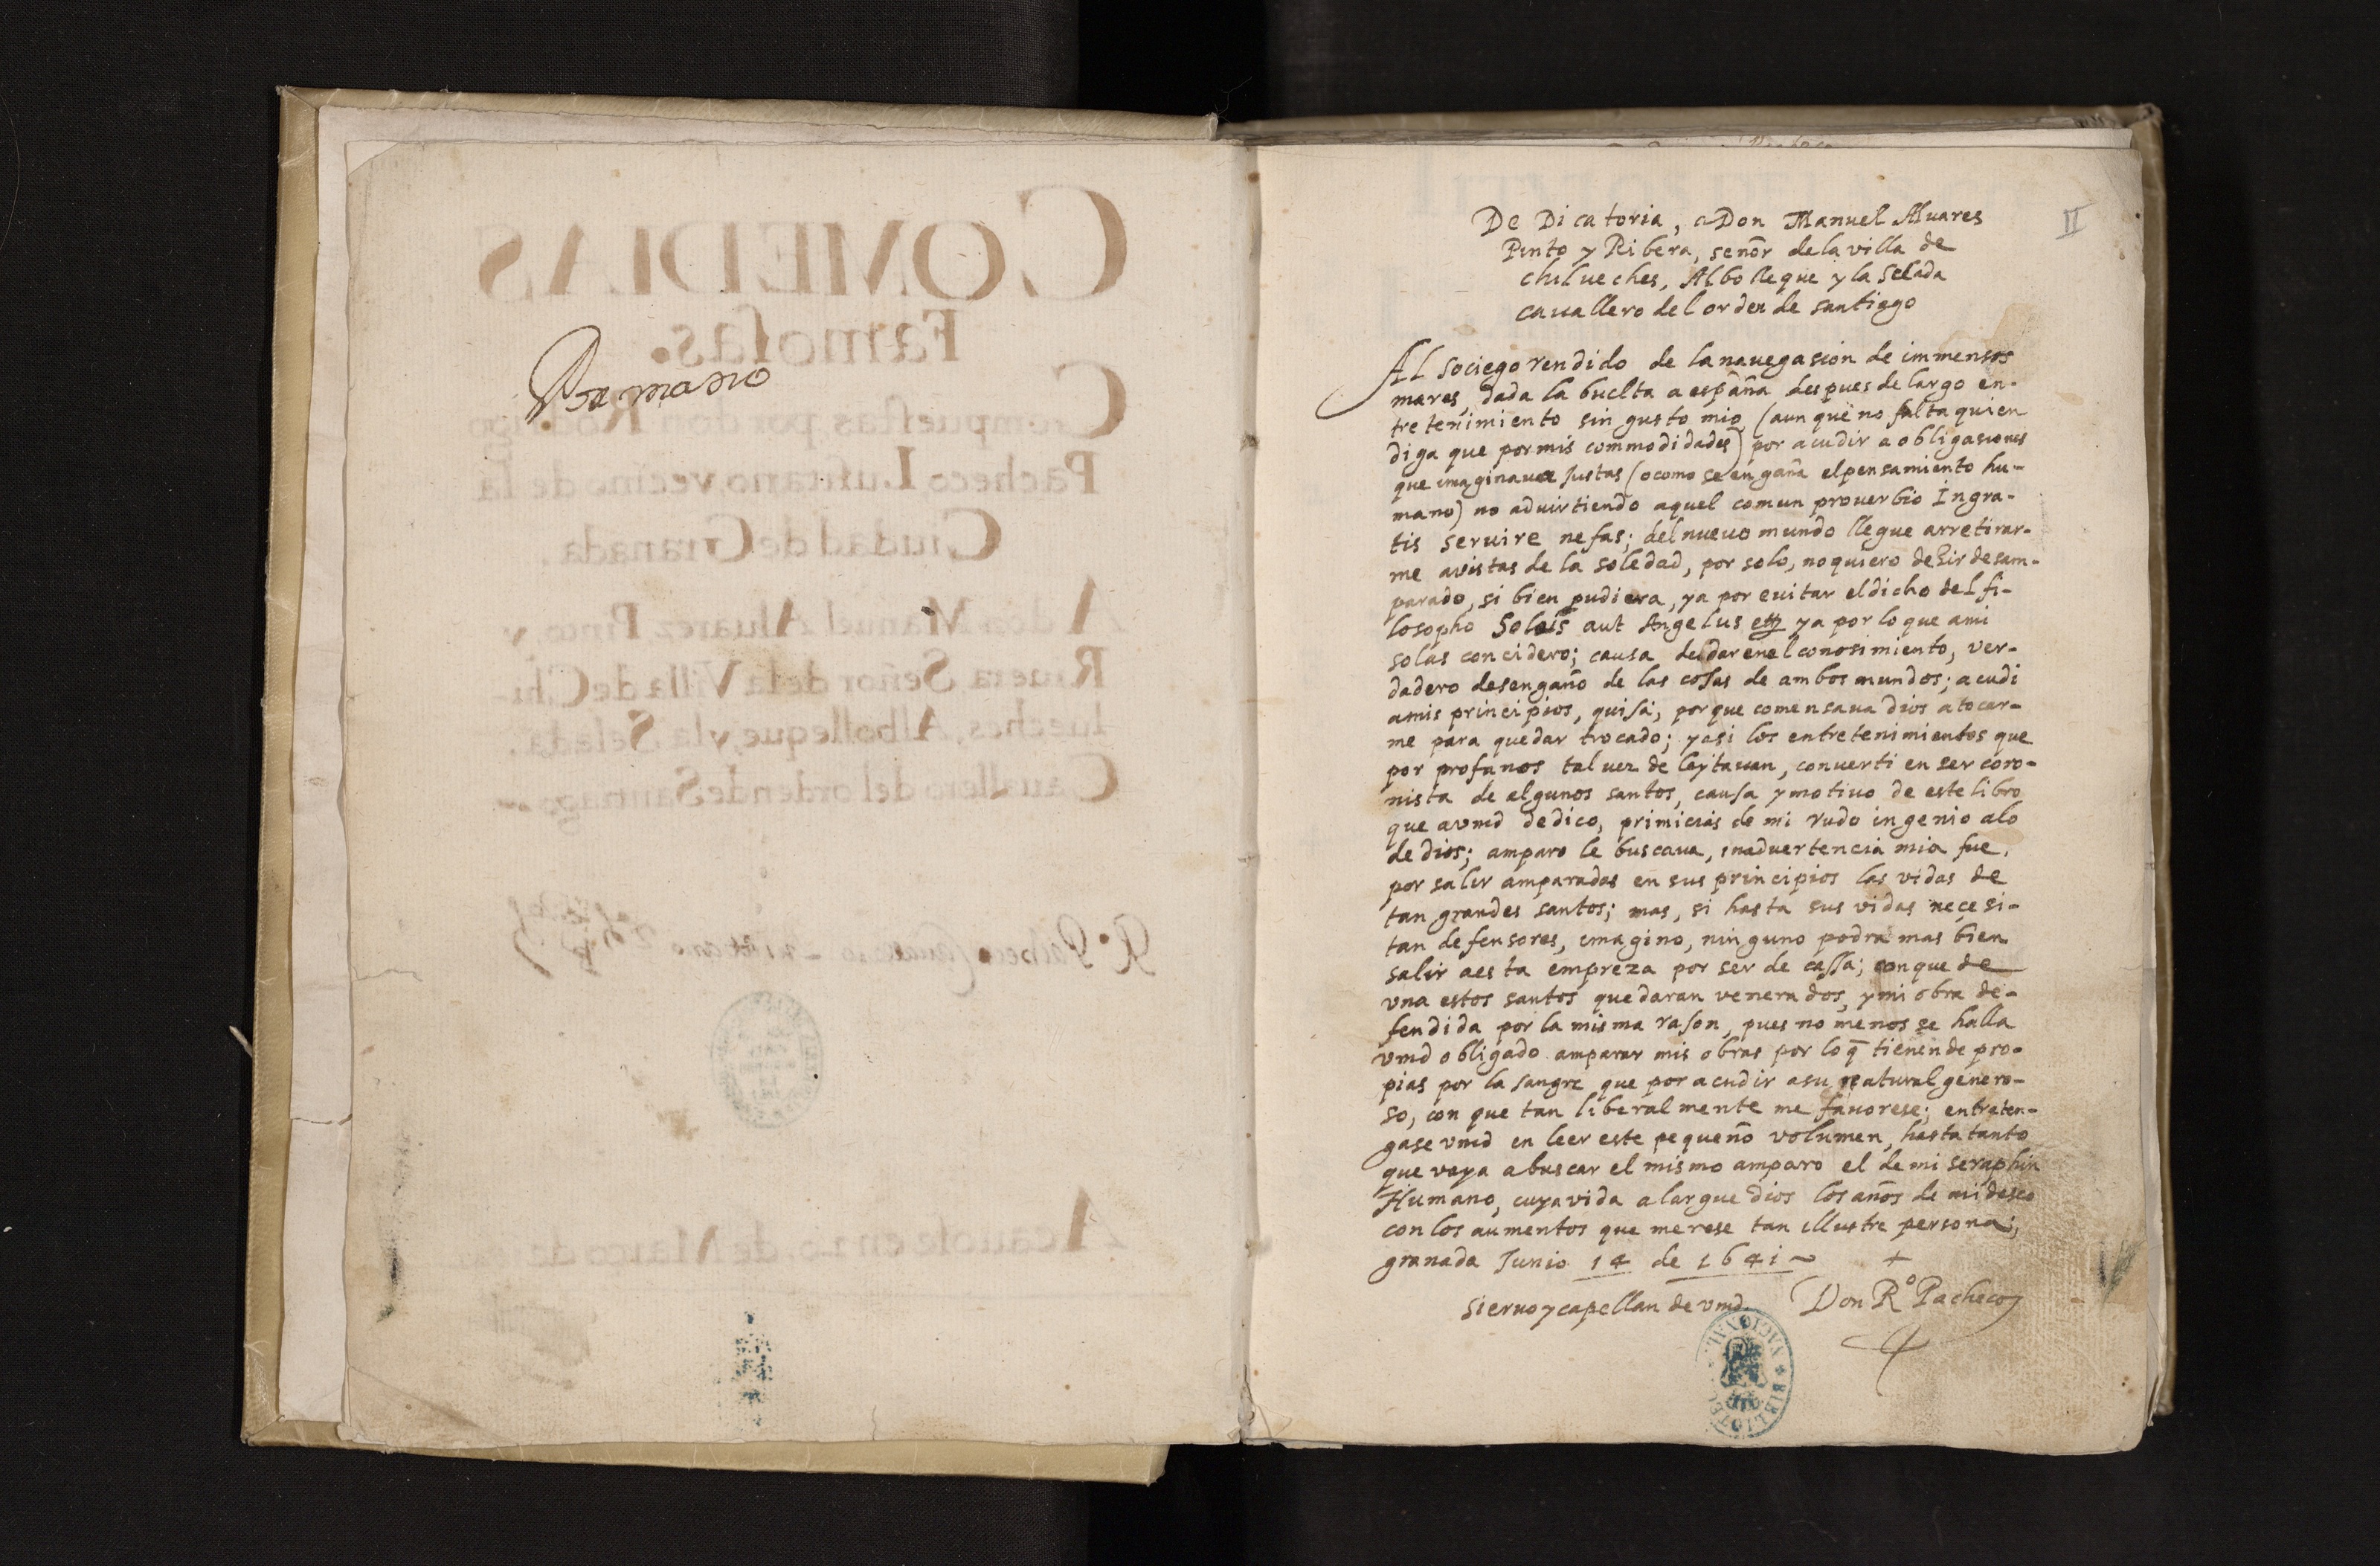 COMEDIAS
Famosas.
Compuestas por don Rodrigo
Pacheco Lusitano, vecino de la
Ciudad de Granada.
A don Manuel Aluarez Pinto, y
Riuera Señor de la Villa de Chi-
lueches, Albolleque, y la Selada.
Cauallero del orden de Santiago
Rº Pacheco
Acauose en 20 de Março de
II
De Dicatoria, a Don Manuel Aluares
Pinto y Ribera, señor de la villa de
chilueches, Albolleque y la Selada
cauallero del orden de santiago
Al sociego rendido de la nauegasion de immensos
mares, dada la buelta a españa despues de largo en-
tretenimiento sin gusto mio, (aun que no falta quien
diga que por mis commodidades) por acudir a obligasiones
que imaginaua Justas (o como se engaña el pensamiento hu-
mano) no aduirtiendo aquel comun prouerbio Ingra-
tis seruire nefas; del nueuo mundo llegue arretirar-
me avistas de la soledad, por solo, no quiero dezir desam-
parado, si bien pudiera, ya por euitar el dicho del fi-
losopho Solus aut Angelus ya por lo que ami
solas concidero; causa de dar en el conosimiento, ver-
dadero desengaño de las cosas de ambos mundos; acudi
amis principios, quisá, porque comensaua Dios atocar-
me para quedar trocado; y asi los entretenimientos que
por profanos tal vez deleytauan, conuerti en ser coro-
nista de algunos santos, causa y motiuo de este libro
que a vmd dedico, primicias de mi rudo ingenio alo
de dios; amparo le buscaua, inaduertencia mia fue,
por salir amparadas en sus principios las vidas de
tan grandes santos; mas, si hasta sus vidas neçesi-
tan defensores, emagino, ninguno podra mas bien
salir aesta empreza por ser de cassa; con que de
vna estos santos quedaran venerados, y mi obra de-
fendida por la misma rason, pues no menos se halla
vmd obligado amparar mis obras por lo q̃ tienen de pro-
pias por la sangre que por acudir asu natural genero-
so, con que tan liberalmente me fauorese; entreten-
gase vmd en leer este pequeño volumen, hasta tanto
que vaya abuscar el mismo amparo el de mi seraphin
Humano, cuya vida alargue Dios los años de mi deseo
con los aumentos que merese tan illustre persona;
granada Junio 14 de 1641 ~ +
sieruo y capellan de vmd. Don Rº Pacheco
BIBLIOTECA NACIONAL